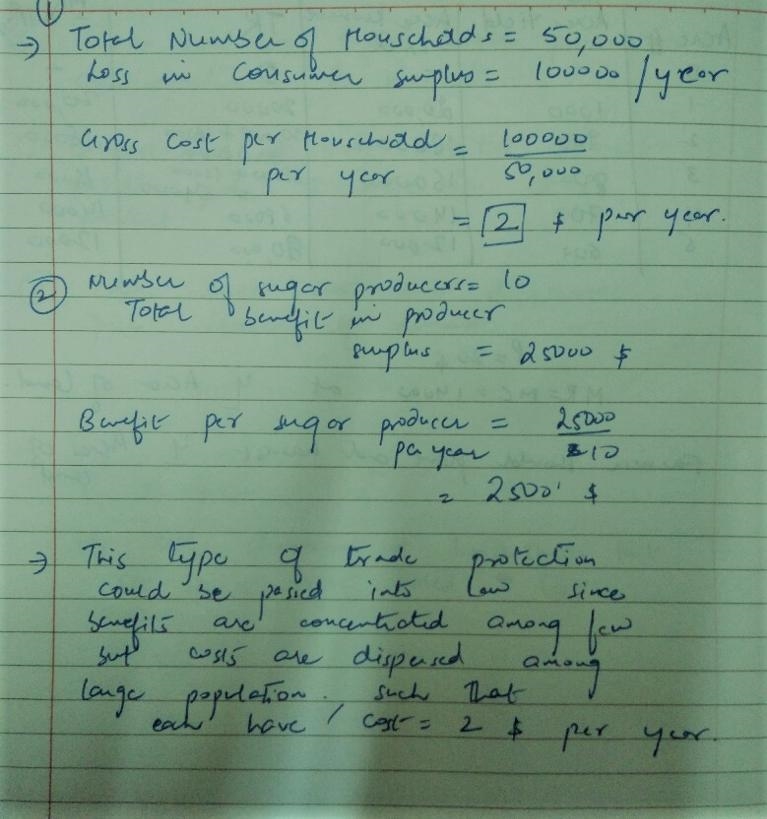 ①
→ Total Number of Households = 50,000
Loss in Consumer surplus = 100000 / year
Gross Cost per Household per year = 100000 / 50,000
= 2 $ per year.
② Number of sugar producers = 10
Total benefit in producer
surplus = 25000 $
Benefit per sugar producer = 25000
per year 10
= 2500 $
→ This type of trade protection
could be passed into law since
benefits are concentrated among few
but costs are dispersed among
large population. such that
each have cost = 2 $ per year.